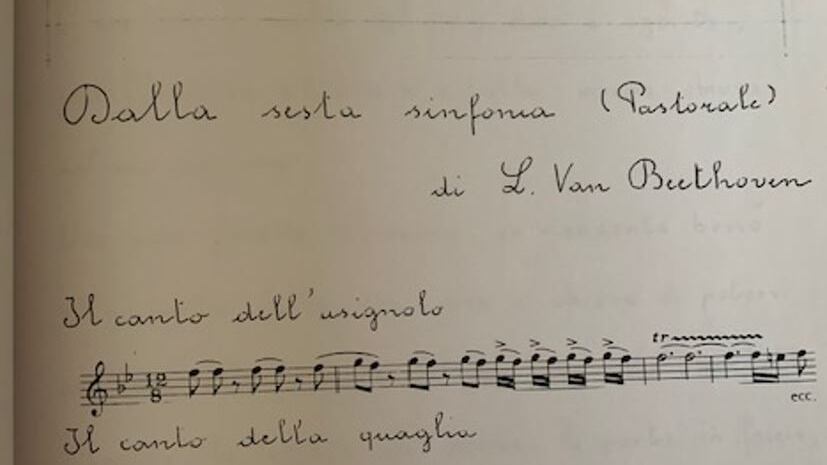 Dalla sesta sinfonia (Pastorale)
di L. Van Beethoven
Il canto dell'usignolo
tr
12
8
ecc.
Il canto della quaglia